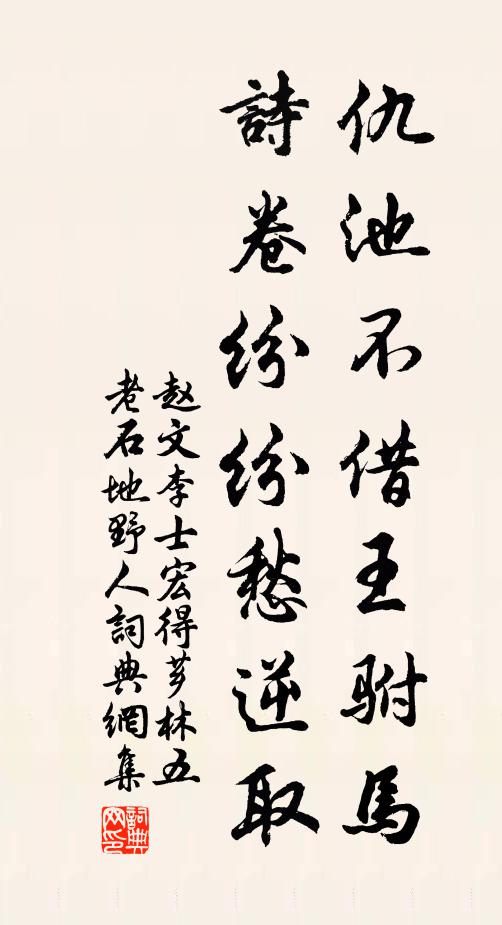 仇池不借王駙馬
詩卷紛紛愁逆取
赵文李士宏得芗林五
老石地野人詞典網集
詞典網印